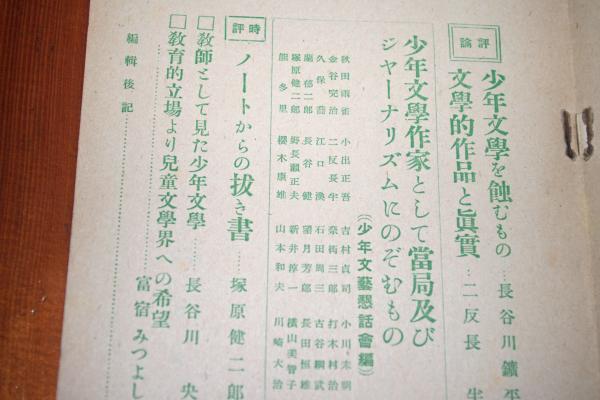 評論
少年文學を蝕むもの……長谷川鑛平
文學的作品と眞實……二反長半
少年文學作家として當局及び
ジャーナリズムにのぞむもの
(少年文藝懇話會編)
秋田雨雀 小出正吾 吉村貞司 小川未明
金谷完治 二反長半 奈街三郎 打木村治
久保喬 江口渙 石田周三 古谷綱武
蘭郁二郎 長谷健 望月芳郎 長田恒雄
塚原健二郎 野長瀬正夫 新井淳一 横山美智子
熊多里 櫻木康雄 山本和夫 川崎大治
時評
ノートからの抜き書……塚原健二郎
□教師として見た少年文學……長谷川央
□敎育的立場より兒童文學界への希望……富宿みつよし
編輯後記……